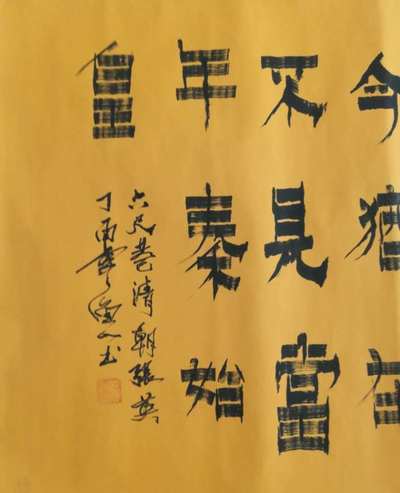 今猶在
不見當
年秦始
皇
六尺巷清朝張英
丁酉書